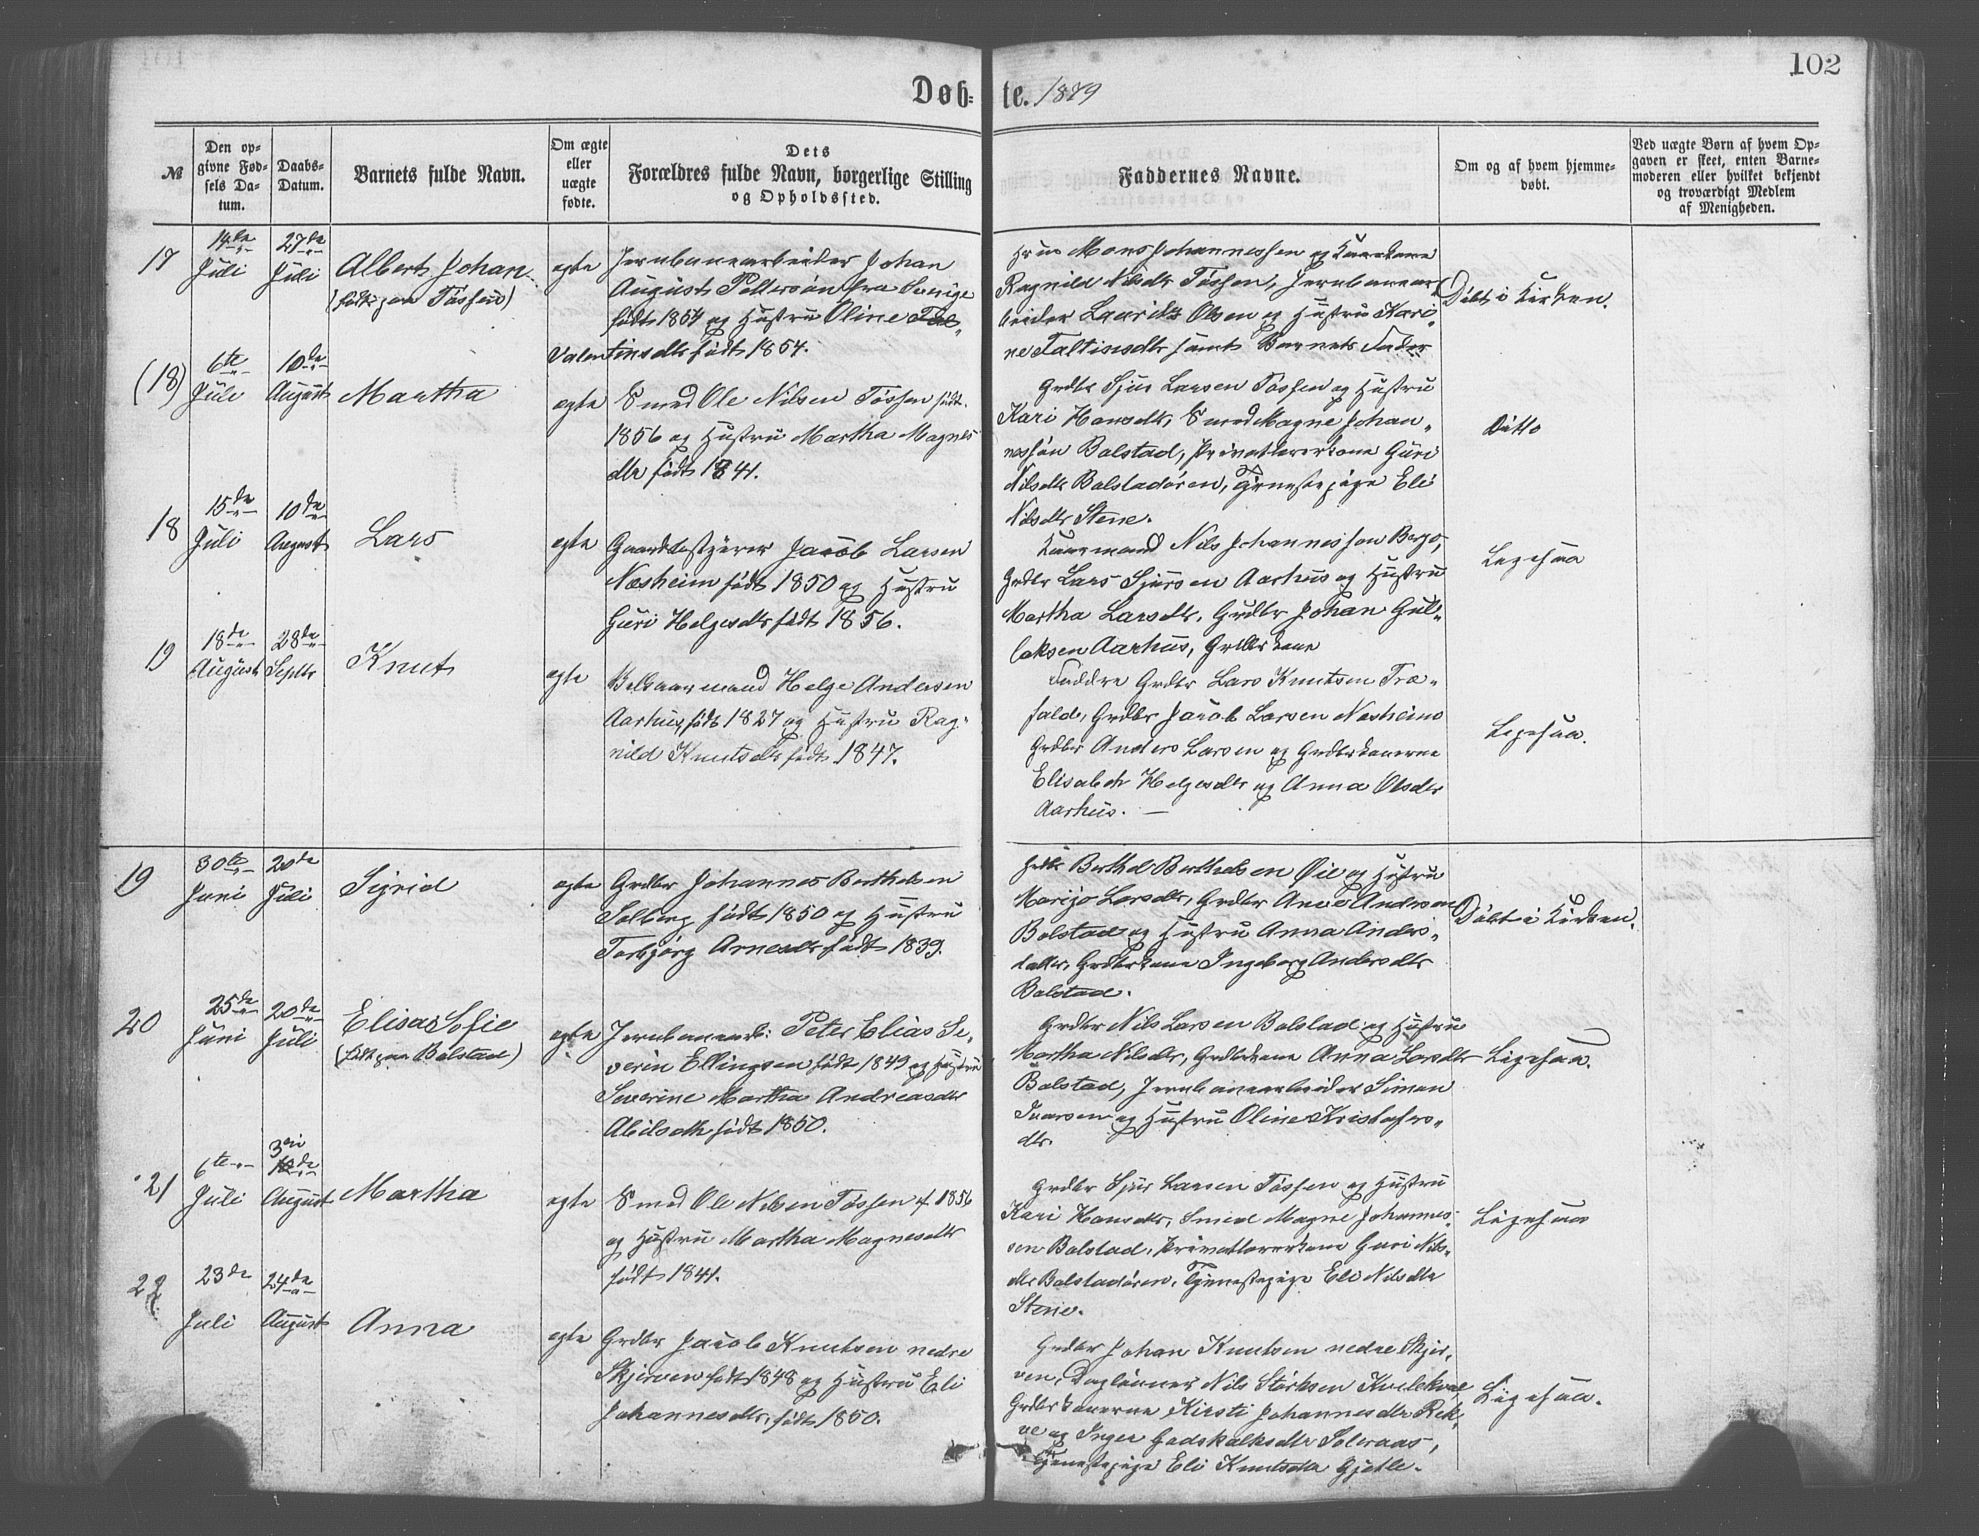 102
Døb- te. 1879
№
Den op-
givne Fød-
sels Da-
tum.
Daabs-
Datum.
Barnets fulde Navn.
Om ægte
eller
uægte
fødte.
Dets
Forældres fulde Navn, borgerlige Stilling
og Opholdssted.
Faddernes Navne.
Om og af hvem hjemme-
døbt.
Ved uægte Børn af hvem Op-
gaven er skeet, enten Barne-
moderen eller hvilket bekjendt
og troværdigt Medlem
af Menigheden.
17
14de
Juli
27de
Juli
Albert Johan
(født paa Tøssen)
egte
Jernbanearbeider Johan
August Pettersøn fra Sverige
født 1854 og Hustru Oline
Valentinsdtr født 1854.
Mons Johannessen og
Ragnild Nilsdtr Tøssen, Jernbanear
beider Lauritz Olsen og Hustru Kari
ne Faltinsdtr samt Barnets Fader
Døbt i Kirken.
(18)
6te
Juli
10de
August
Martha
egte
Smed Ole Nilsen Tøssen født
1856 og Hustru Martha Magnes
dtr født 1841.
Grdbr Sjur Larsen Tøssen og Hustru
Kari Hansdtr, Smed Magne Johan-
nessøn Bolstad, Privatlærerkone Guri
Nilsdtr Bolstadøren, Tjenestepige Eli
Nilsdtr Stene.
Ditto
18
15de
Juli
10de
August
Lars
egte
Gaardbestyrer Jacob Larsen
Næsheim født 1850 og Hustru
Guri Helgesdtr født 1856.
Kaarmand Nils Johannessøn Bergo,
Grdbr Lars Sjursen Aarhus og Hustru
Martha Larsdtr, Grdbr Johan Gul-
leksen Aarhus, Grdbrkone
Ligesaa
19
18de
August
28de
Septbr
Knut
egte
Helge Andersen
Aarhus, født 1827 og Hustru Rag-
nild Knutsdtr født 1847.
Faddre Grdbr Lars Knutsen Træ-
fald, Grdbr Jacob Larsen Næsheim
Grdbr Anders Larsen og Grdbrkonerne
Elisabeth Helgesdtr og Anna Olsdtr
Aarhus. —
Ligesaa.
19
30te
Juni
20de
Juli
Sigrid
egte
Grdbr Johannes Berthelsen
Solberg født 1850 og Hustru
Torbjørg Arnesdtr født 1839.
Grdbr Berthel Berthelsen Øie og Hustru
Marijo Larsdtr, Grdbr Arne Andersen
Bolstad og Hustru Anna Anders-
datter, Grdbrkone Ingeborg Andersdtr
Bolstad.
Døbt i Kirken.
20
25de
Juni
20de
Juli
Elisa Sofie
(født paa Bolstad)
egte
Jernbanearb: Peter Elias Se-
verin Ellingsen født 1849 og Hustru
Severine Martha Andreasdtr
født 1850.
Grdbr Nils Larsen Bolstad og Hustru
Martha Nilsdtr, Grdbrkone Anna Larsdtr
Bolstad, Jernbanearbeider Simon
Ivarsen og Hustru Oline Kristofers-
dtr.
Ligesaa.
21
6te
Juli
3die
10de
August
Martha
egte
Smed Ole Nilsen Tøssen f 1856
og Hustru Martha Magnesdtr
født 1841.
Grdbr Sjur Larsen Tøssen og Hustru
Kari Hansdtr, Smed Magne Johannes-
sen Bolstad, Privatlærerkone Guri Nils-
dtr Bolstadøren, Tjenestepige Eli Nilsdtr
Stene.
Ligesaa
22
23de
Juli
24de
August
Anna
egte
Grdbr Jacob Knutsen nedre
Skjerven født 1848 og Hustru Eli
Johannesdtr, født 1850.
Grdbr Johan Knutsen nedre Skjer-
ven, Dagleiner Nils Størksen Kvilekval
Grdbrkonerne Kirsti Johannesdtr Rek-
ve og Inger Godskalksdtr Soleraas,
Tjenestepige Eli Knutsdtr Gjetle.
Ligesaa.